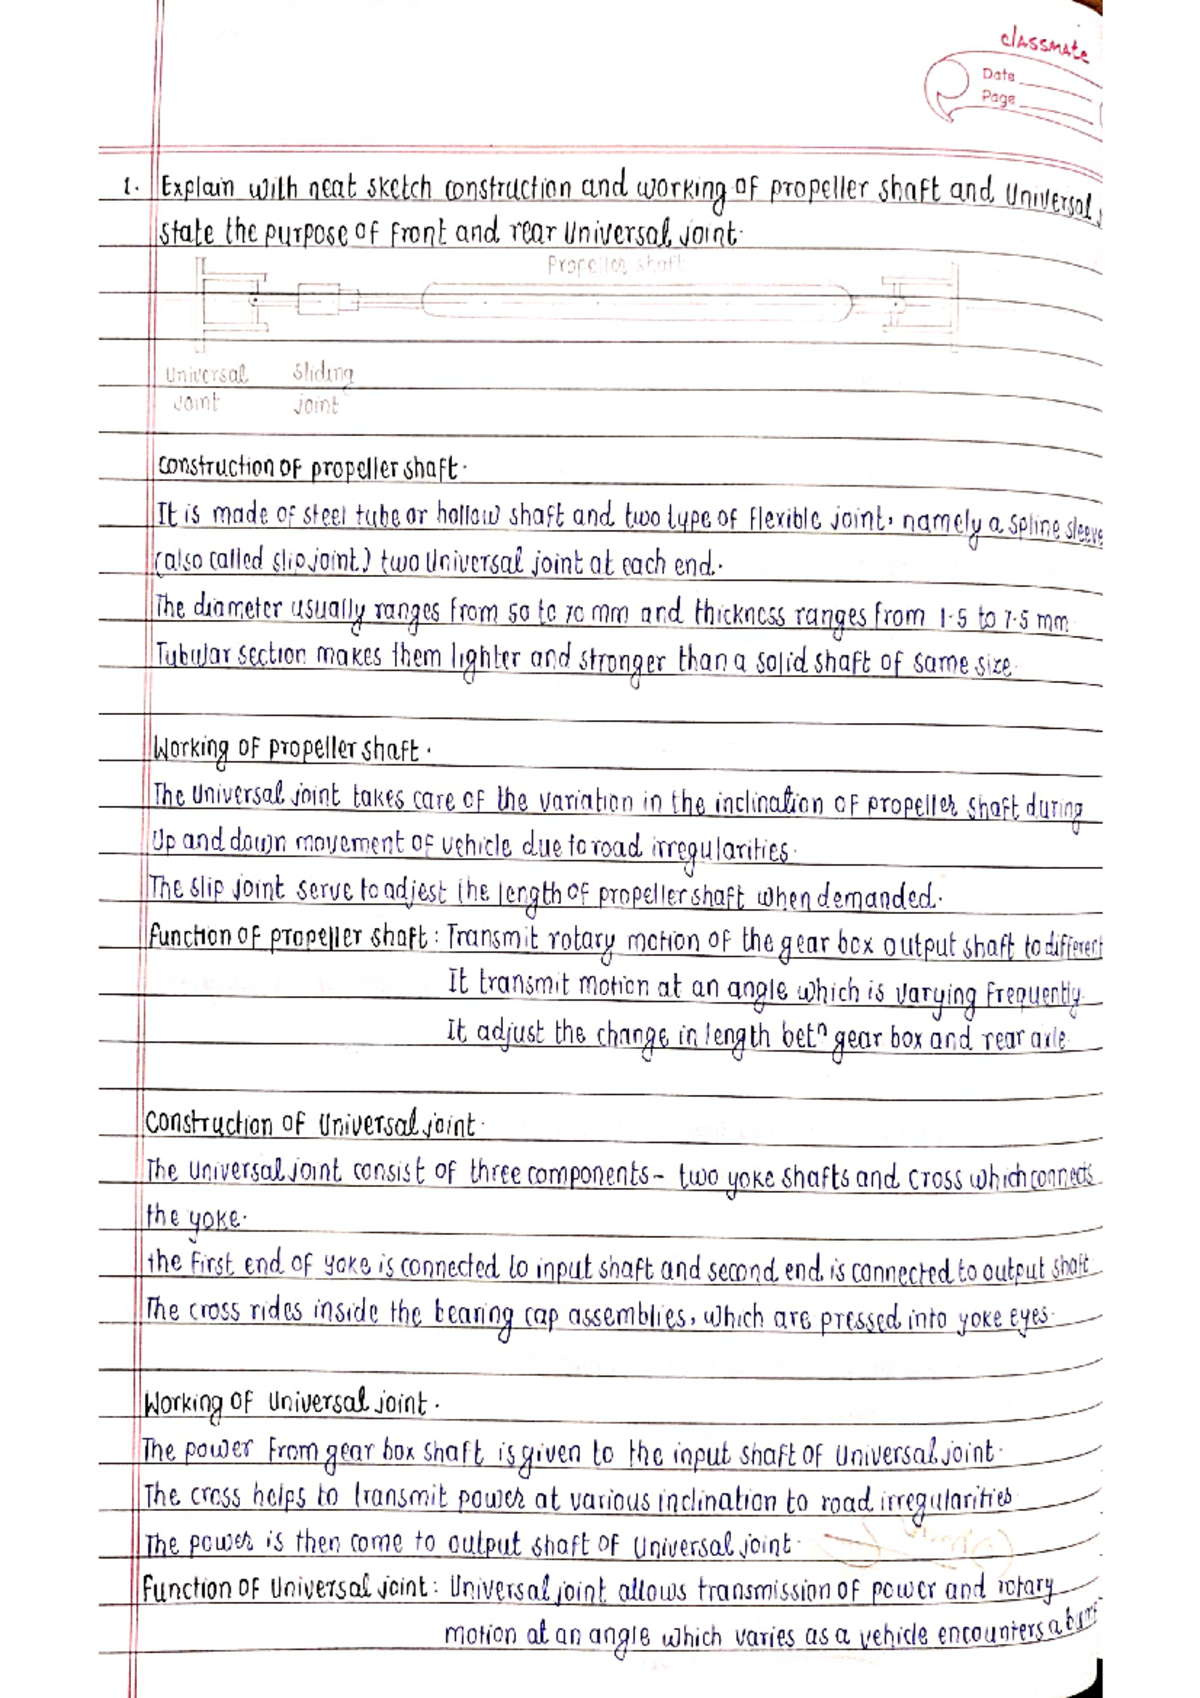 classmate
Date
Page
1. Explain with neat sketch construction and working of propeller shaft and Universal
state the purpose of front and rear Universal joint.
Propeller shaft
Universal sliding
Joint joint
Construction of propeller shaft.
It is made of steel tube or hollow shaft and two type of flexible joint, namely a spline sleeve
(also called slip joint) two Universal joint at each end.
The diameter usually ranges from 50 to 70 mm and thickness ranges from 1.5 to 7.5 mm
Tubular section makes them lighter and stronger than a solid shaft of same size.
Working of propeller shaft.
The Universal joint takes care of the variation in the inclination of propeller shaft during
Up and down movement of vehicle due to road irregularities.
The slip joint serve to adjest the length of propeller shaft when demanded.
function of propeller shaft: Transmit rotary motion of the gear box output shaft to
It transmit motion at an angle which is varying frequently.
It adjust the change in length betn gear box and rear axle
Construction of Universal joint.
The Universal joint consist of three components- two yoke shafts and cross which connects
the yoke.
the first end of yoke is connected to input shaft and second end. is connected to output shaft
The cross rides inside the bearing cap assemblies, which are pressed into yoke eyes.
Working of Universal joint.
The power from gear box shaft is given to the input shaft of Universal joint.
The cross helps to transmit power at various inclination to road irregularities
The power is then come to output shaft of Universal joint.
function of Universal joint: Universal joint allows transmission of power and rotary
motion at an angle which varies as a vehicle encounters a